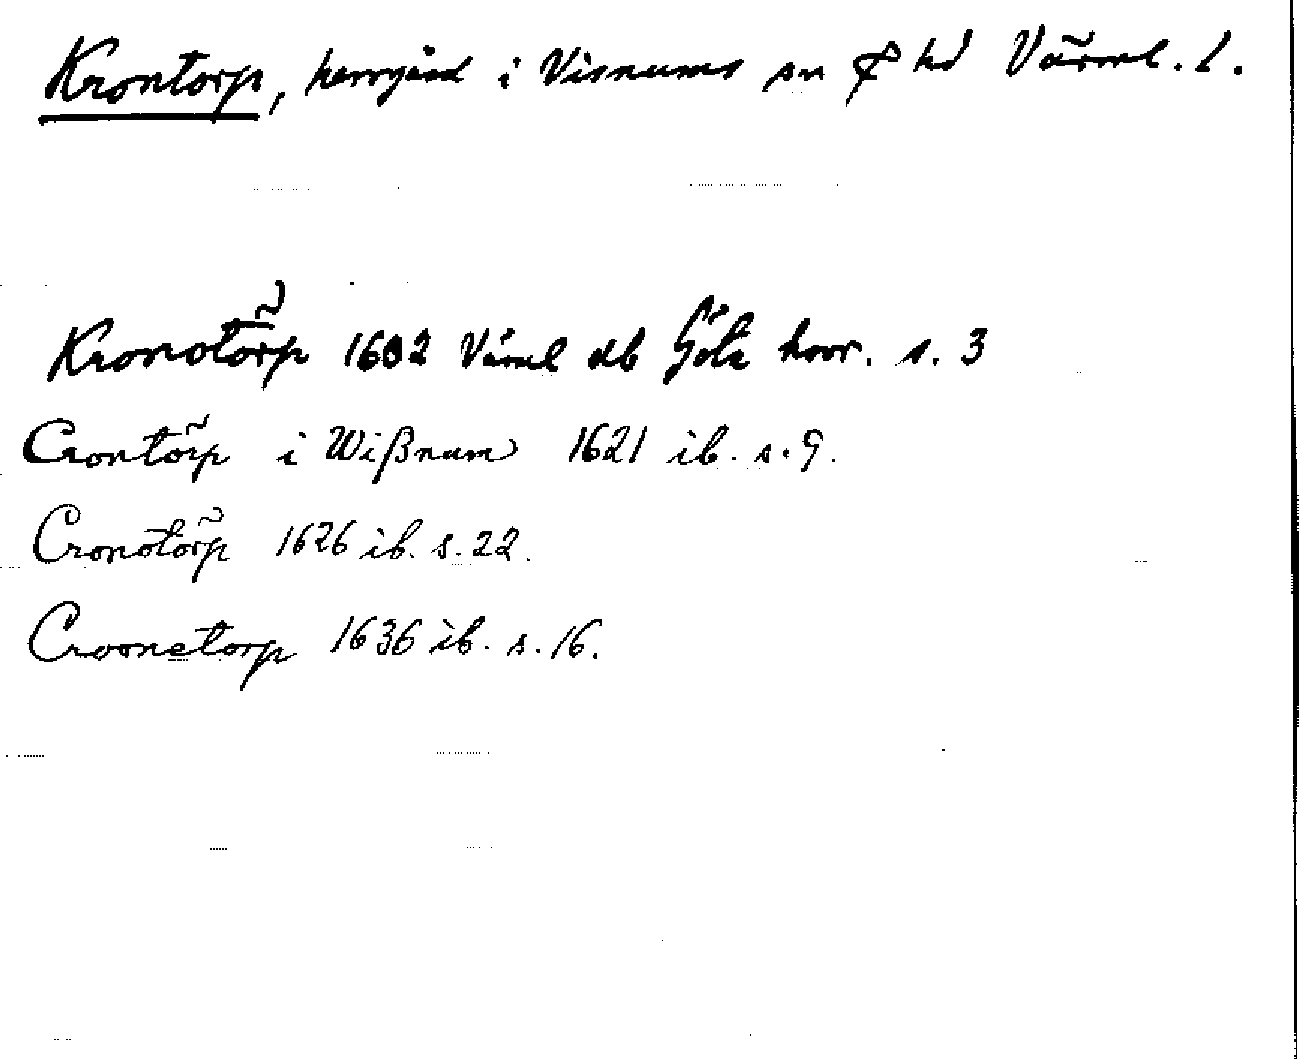 Krontorp, herrgård i Visnums sn & hd Värml. l.
Kronotorp 1602 Värml db Göta hovr. s. 3
Crontorp i Wißnum 1621 ib. s. 9.
Cronotorp 1626 ib. s. 22.
Croonetorp 1636 ib. s. 16.